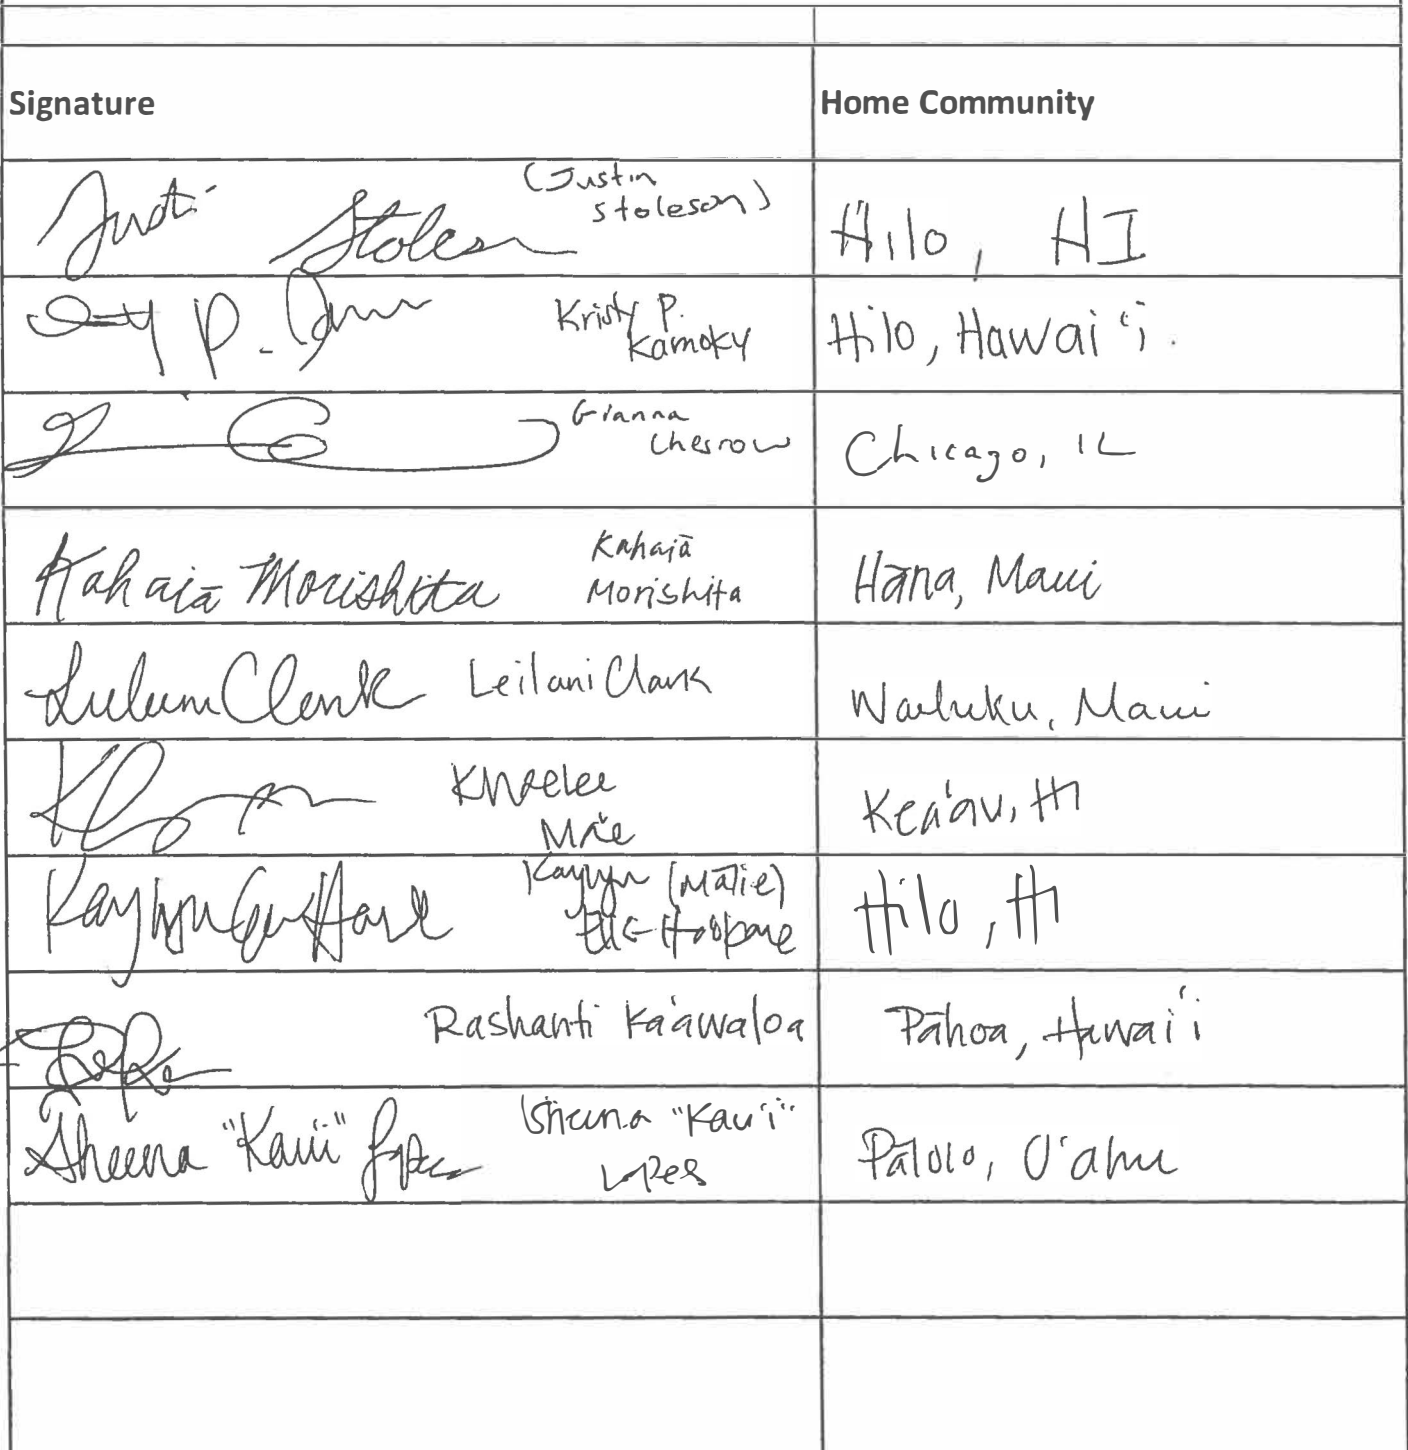 Signature Home Community
Justin Stoleson (Justin
stoleson) Hilo, HI
P. Kristy P.
Kamoky Hilo, Hawai‘i.
Gianna
Chesrow Chicago, IL
Kahaiā Morishita Kahaiā
Morishita Hāna, Maui
Leilani Clark Leilani Clark Wailuku, Maui
Kea'au, HI
Kaylyn Kaylyn (Mālie)
Hilo, HI
Rashanti Ka'awaloa Pāhoa, Hawai'i
Sheena "Kau'i" Lopes Sheena "Kau'i"
Lopes Pālolo, O'ahu